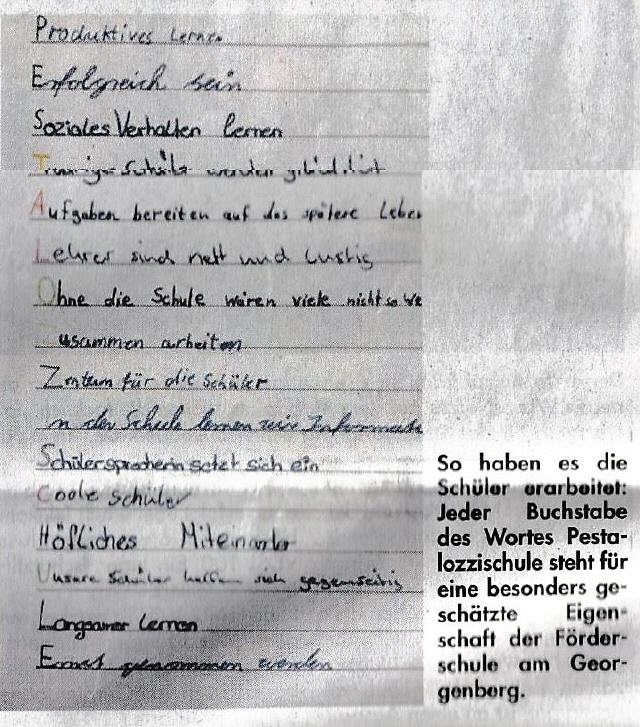 Produktives Lernen
Erfolgreich sein
Soziales Verhalten lernen
Traurige Schüler werden
Aufgaben bereiten auf das spätere Leben
Lehrer sind nett und lustig
Ohne die Schule wären viele nicht so we
usammen arbeiten
Zentrum für die Schüler
n der Schule lernen wir Informati
Schülersprecherin setzt sich ein
Coole Schüler
Höfliches Miteinander
Unsere Schüler helfen sich gegenseitig
Langsamer lernen
Ernst genommen werden
So haben es die
Schüler erarbeitet:
Jeder Buchstabe
des Wortes Pesta-
lozzischule steht für
eine besonders ge-
schätzte Eigen-
schaft der Förder-
schule am Geor-
genberg.